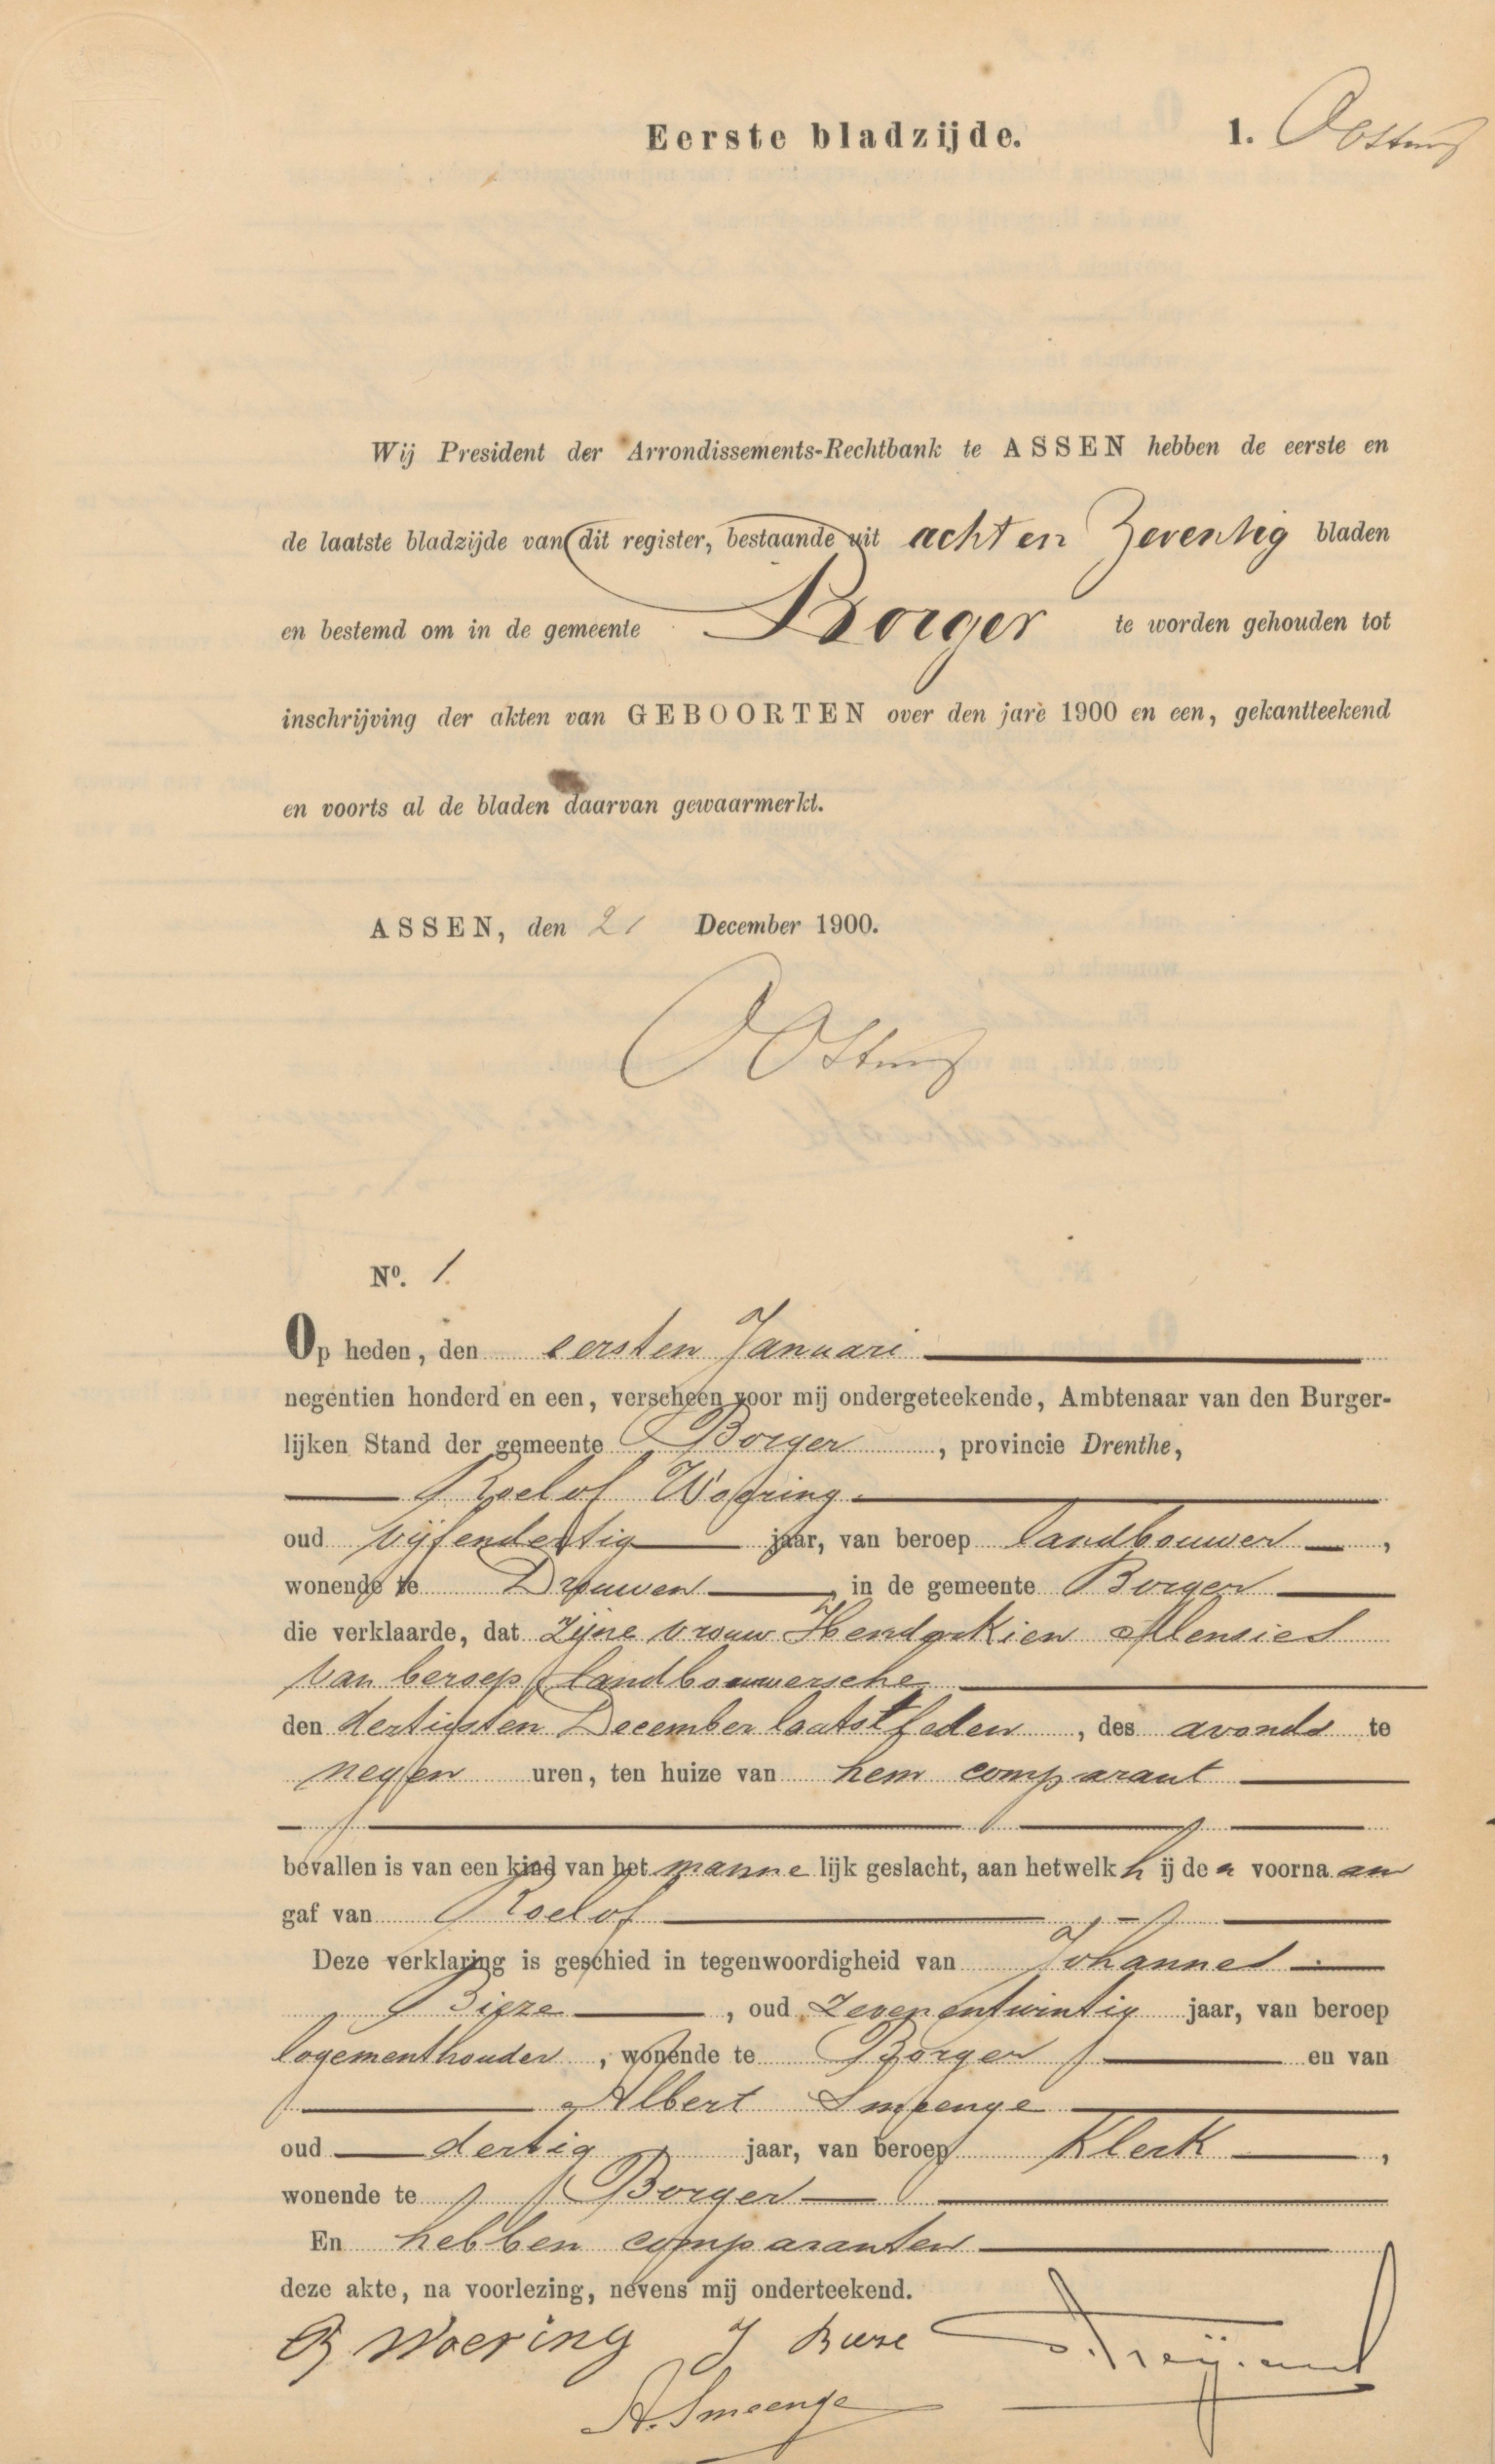 Eerste bladzijde. 1. Oosting
Wij President der Arrondissements-Rechtbank te ASSEN hebben de eerste en
de laatste bladzijde van dit register, bestaande uit acht en Zeventig bladen
en bestemd om in de gemeente Borger te worden gehouden tot
inschrijving der akten van GEBOORTEN over den jare 1900 en een, gekantteekend
en voorts al de bladen daarvan gewaarmerkt.
ASSEN, den 21 December 1900.
Oosting
No. 1.
Op heden, den eersten Januari
negentien honderd en een, verscheen voor mij ondergeteekende, Ambtenaar van den Burger-
lijken Stand der gemeente Borger, provincie Drenthe,
Roelof Woering
oud vijfendertig jaar, van beroep landbouwer,
wonende te Drouwen in de gemeente Borger
die verklaarde, dat zijne vrouw Henderkien Alensies
van beroep landbouwersche
den dertigsten December laatstleden, des avonds te
negen uren, ten huize van hem comparant
bevallen is van een kind van het mannelijk geslacht, aan hetwelk hij den voornaam
gaf van Roelof
Deze verklaring is geschied in tegenwoordigheid van Johannes
Bieze, oud zevenentwintig jaar, van beroep
logementhouder, wonende te Borger en van
Albert Smeenge
oud dertig jaar, van beroep Klerk,
wonende te Borger
En hebben comparanten
deze akte, na voorlezing, nevens mij onderteekend.
R Woering J Bieze
A. Smeenge